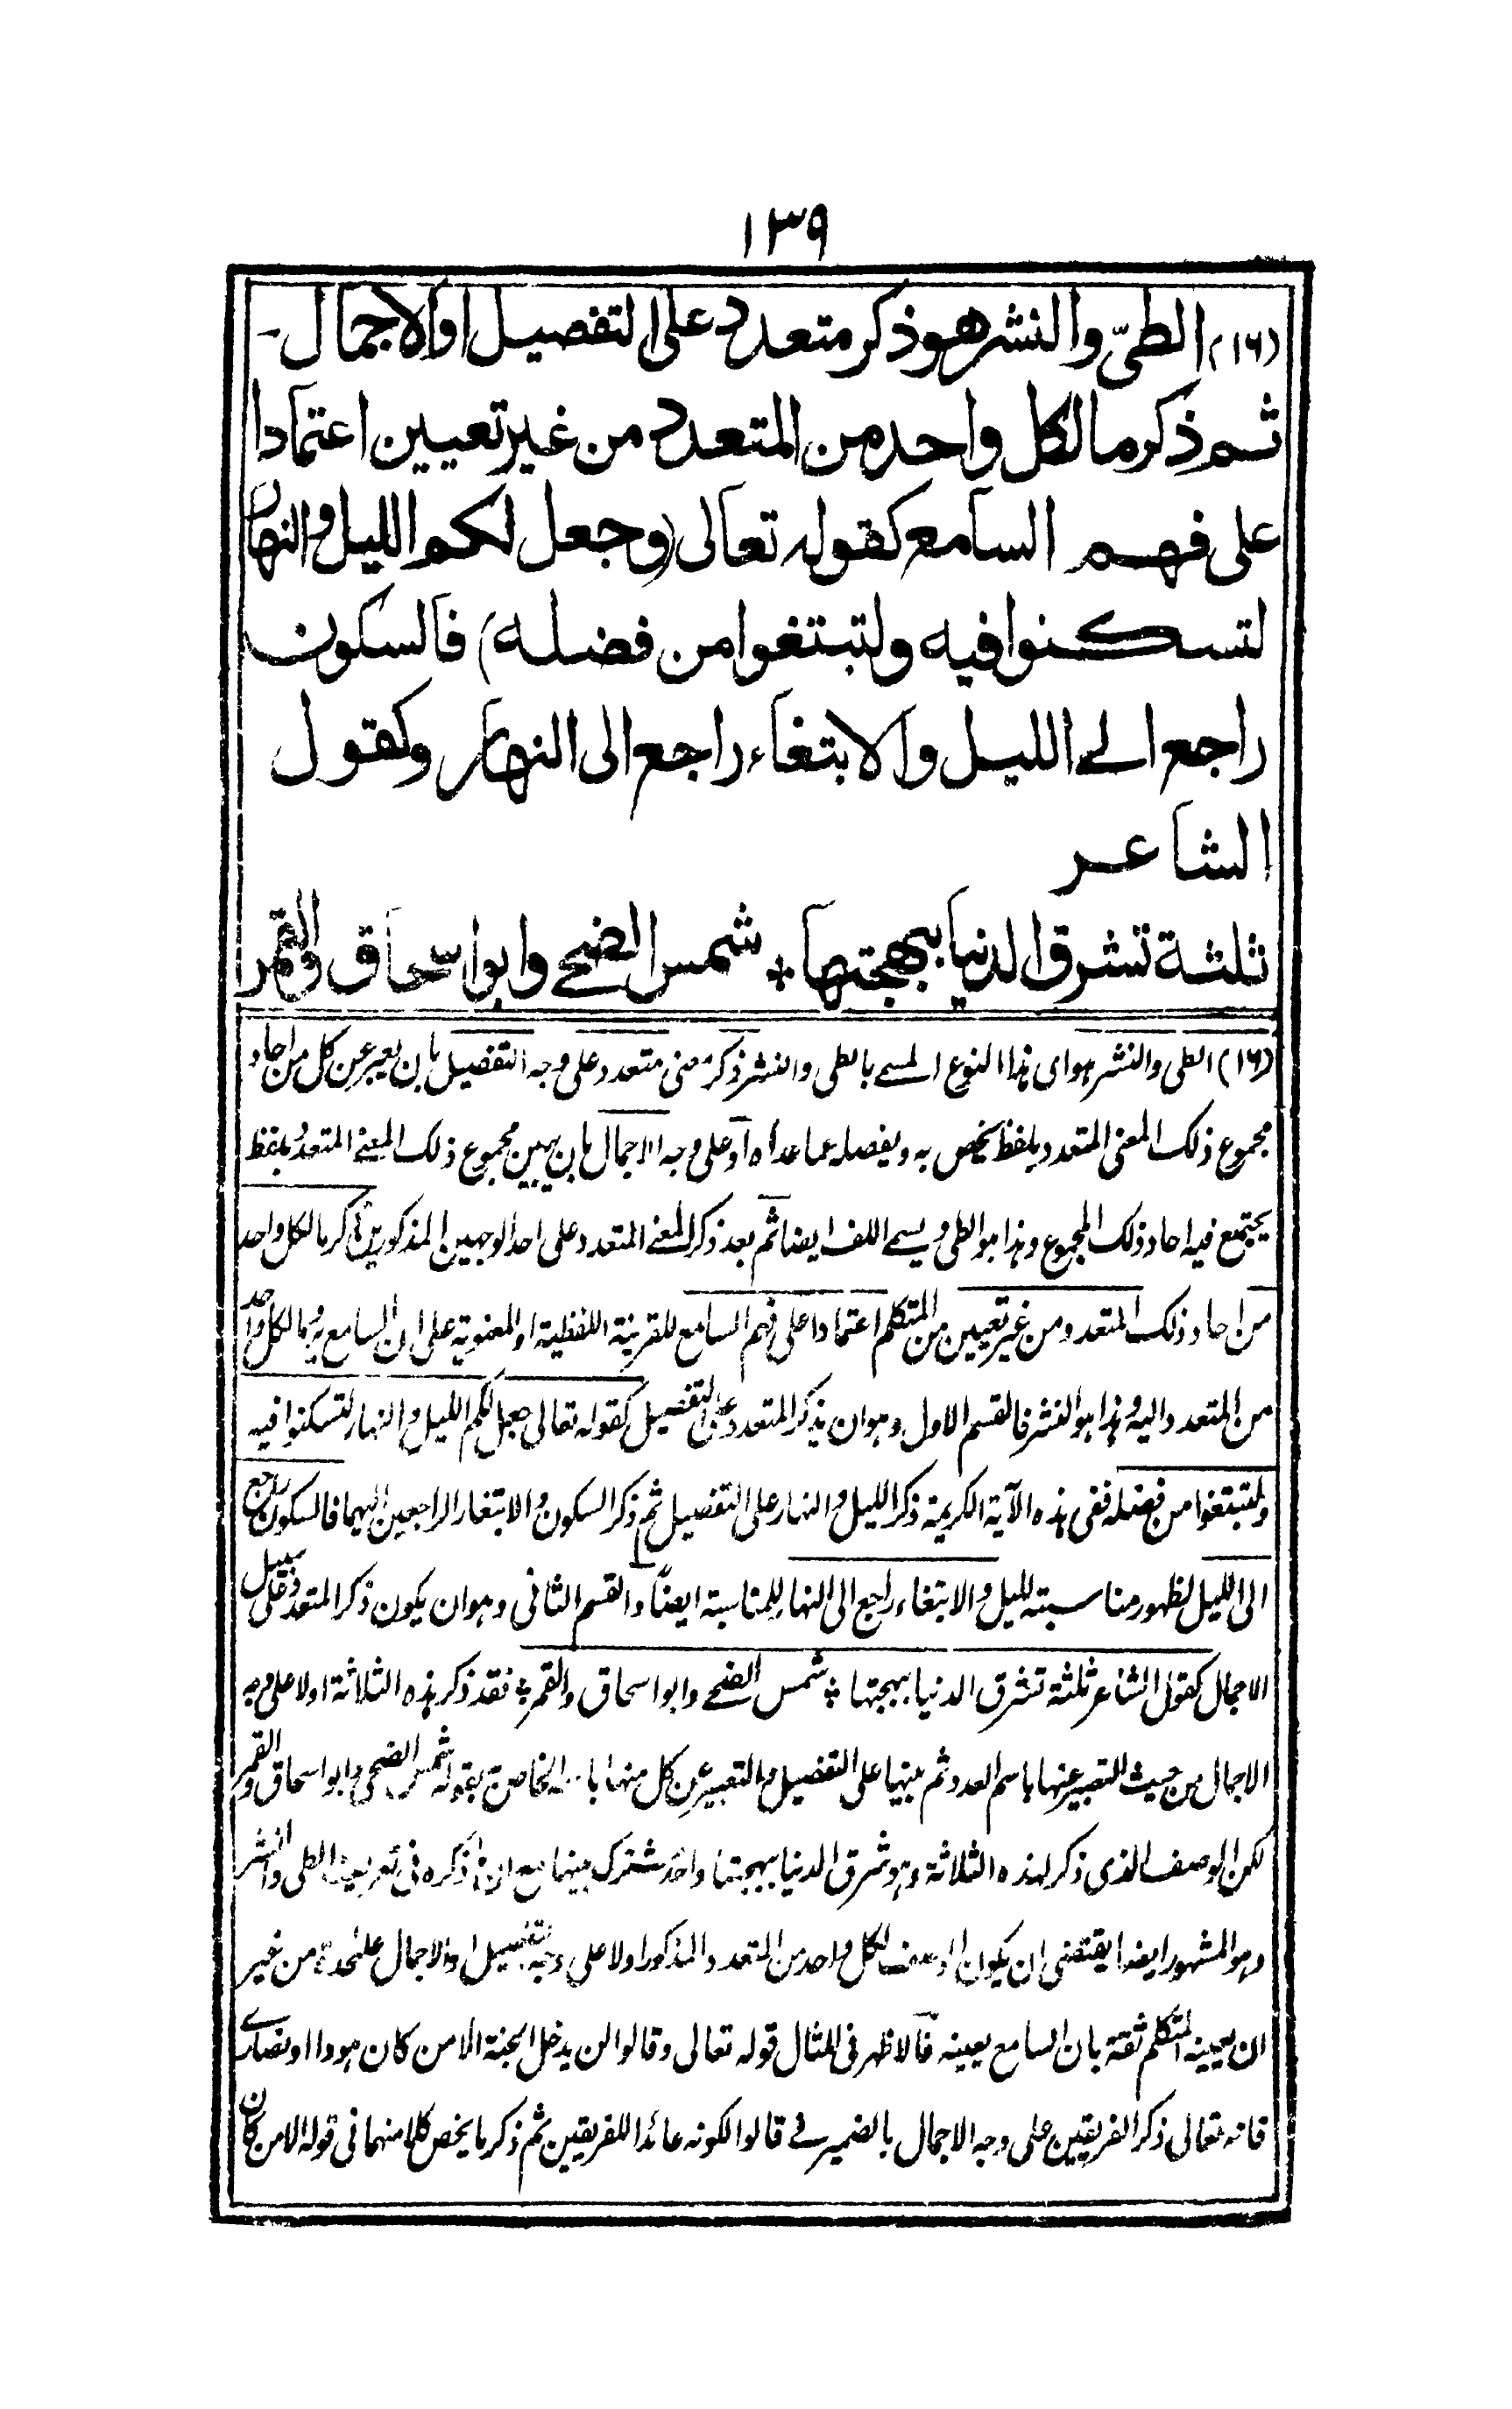 ١٣٩
(١٦) الطيّ والنشر هو ذكر متعدد على التفصيل او الاجمال۔
ثم ذكر ما لكل واحد من المتعدد من غير تعيين اعتمادا
على فهم السامع كقوله تعالى (وجعل لكم الليل والنهار
لتسكنوا فيه ولتبتغوا من فضله) فالسكون
راجع الى الليل والابتغاء راجع الى النهار وكقول
الشاعر
ثلثة تشرق الدنيا ببهجتها * شمس الضحى وابو اسحاق والقمر
(١٦) الطى والنشر هو اى هذا النوع المسمى بالطى والنشر ذكر معنى متعدد على وجه التفصيل بان يعبر عن كل من احاد
مجموع ذلك المعنى المتعدد بلفظ يخص به ويفصله عما عداه او على وجه الاجمال بان يبين مجموع ذلك المعنى المتعدد بلفظ
يجتمع فيه احاد ذلك المجموع وهذا هو الطى ويسمى اللف ايضا ثم بعد ذكر المعنى المتعدد على احد الوجهين المذكورين ذكر ما لكل واحد
من احاد ذلك المتعدد ومن غير تعيين من المتكلم اعتمادا على فهم السامع للقرينة اللفظية او المعنوية على ان السامع يرد ما لكل واحد
من المتعدد اليه وهذا هو النشر فالقسم الاول وهو ان يذكر المتعدد على التفصيل كقوله تعالى جعل لكم الليل والنهار لتسكنوا فيه
ولتبتغوا من فضله ففى هذه الآية الكريمة ذكر الليل والنهار على التفصيل ثم ذكر السكون والابتغاء الراجعين اليهما فالسكون راجع
الى الليل لظهور مناسبته لليل والابتغاء راجع الى النهار للمناسبة ايضا والقسم الثانى وهو ان يكون ذكر المتعدد على سبيل
الاجمال كقول الشاعر ثلثة تشرق الدنيا ببهجتها * شمس الضحى وابو اسحاق والقمر * فقد ذكر هذه الثلاثة اولا على وجه
الاجمال من حيث التعبير عنها باسم العدد ثم بينها على التفصيل والتعبير عن كل منها الخاصة بقوله شمس الضحى وابو اسحاق والقمر
لكن الوصف الذى ذكر لهذه الثلاثة وهو شرق الدنيا ببهجتها واحد مشترك بينها مع ان ما ذكره فى تعريف الطى والنشر
وهو المشهور ايضا يقتضى ان يكون الوصف لكل واحد من المتعدد المذكور اولا على وجه التفصيل او الاجمال على حدة من غير
ان يعينه المتكلم ثقة بان السامع يعينه فالاظهر فى المثال قوله تعالى وقالوا لن يدخل الجنة الا من كان هودا او نصارى
فانه تعالى ذكر الفريقين على وجه الاجمال بالضمير فى قالوا لكونه عائدا للفريقين ثم ذكر ما يخص كلا منهما فى قوله الا من كان